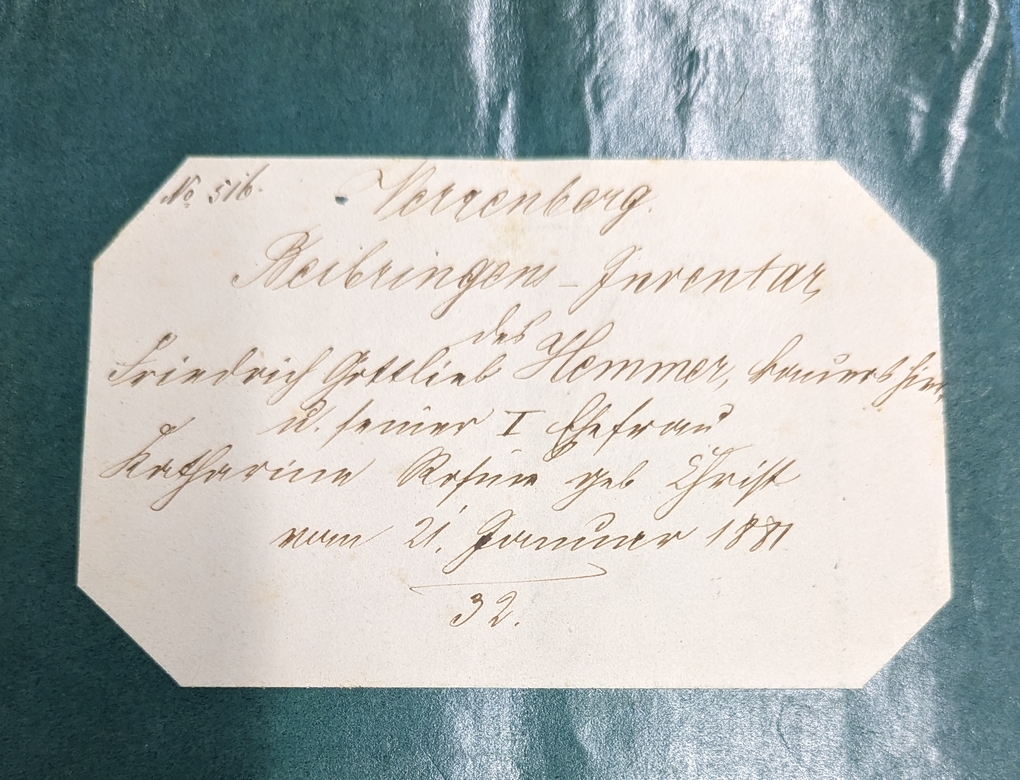 No 516.
Verrenberg.
Beibringens-Inventar
des
Friedrich Gottlieb Hemmer, Bauers hier,
u. seiner I Ehefrau
Katharine Rosine geb Christ
vom 21. Januar 1881
32.